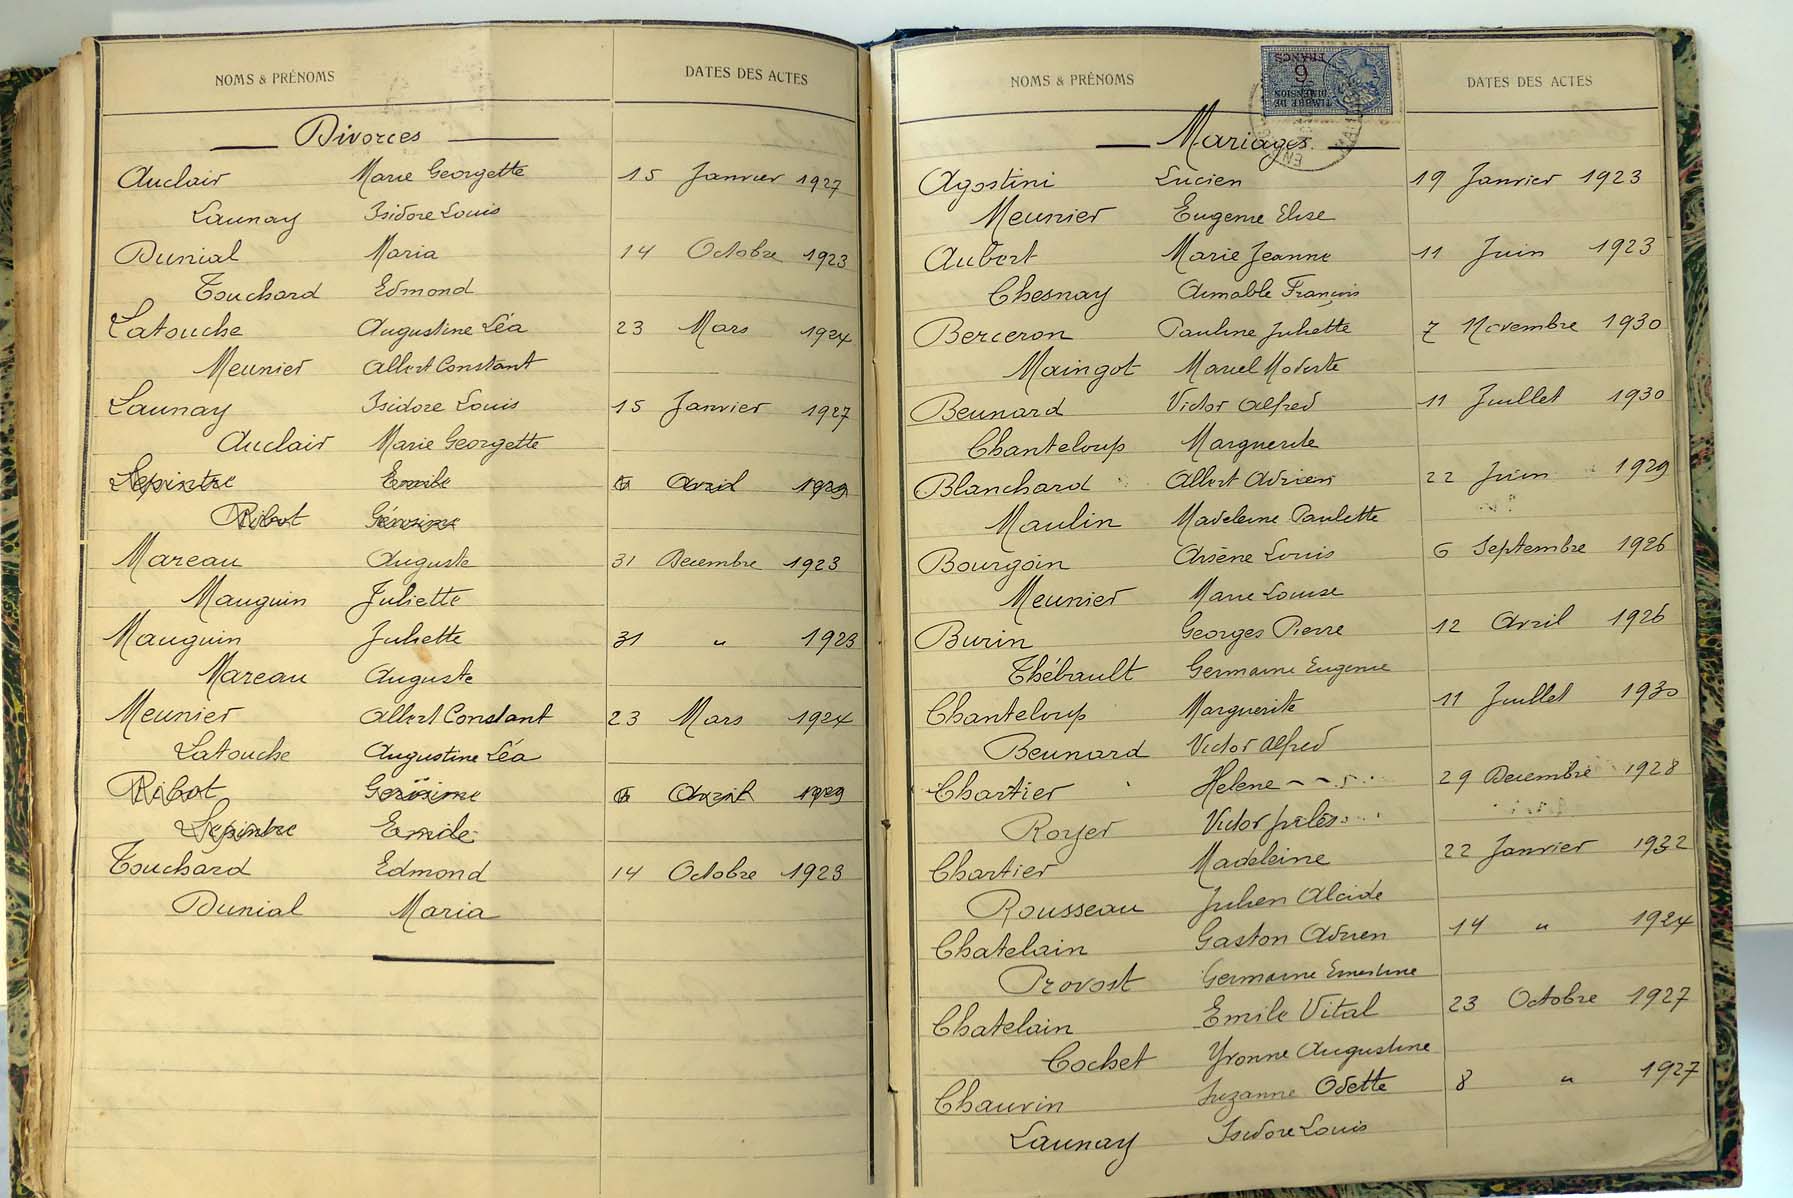 NOMS & PRÉNOMS DATES DES ACTES
Divorces
Auclair Marie Georgette 15 Janvier 1927
Launay Isidore Louis
Dunial Maria 14 Octobre 1923
Touchard Edmond
Latouche Augustine Léa 23 Mars 1924
Meunier Albert Constant
Launay Isidore Louis 15 Janvier 1927
Auclair Marie Georgette
Lepintre Emile Avril 1929
Ribot
Mareau Auguste 31 Decembre 1923
Mauguin Juliette
Mauguin Juliette 31 " 1923
Mareau Auguste
Meunier Albert Constant 23 Mars 1924
Latouche Augustine Léa
Ribot Avril 1929
Lepintre Emile
Touchard Edmond 14 Octobre 1923
Dunial Maria
NOMS & PRÉNOMS DATES DES ACTES
TIMBRE DE DIMENSION
6 FRANCS
Mariages
Agostini Lucien 19 Janvier 1923
Meunier Eugenie Elise
Aubert Marie Jeanne 11 Juin 1923
Chesnay Aimable François
Berceron Pauline Juliette 7 Novembre 1930
Maingot Marcel Modeste
Beunard Victor Alfred 11 Juillet 1930
Chanteloup Marguerite
Blanchard Albert Adrien 22 Juin 1929
Maulin Madeleine Paulette
Bourgoin Arsène Louis 6 Septembre 1926
Meunier Marie Louise
Burin Georges Pierre 12 Avril 1926
Thébault Germaine Eugenie
Chanteloup Marguerite 11 Juillet 1930
Beunard Victor Alfred
Chartier Helene 29 Decembre 1928
Royer Victor Jules
Chartier Madeleine 22 Janvier 1932
Rousseau Julien Alcide
Chatelain Gaston Adrien 14 " 1924
Provost Germaine Ernestine
Chatelain Emile Vital 23 Octobre 1927
Cochet Yvonne Augustine
Chauvin Suzanne Odette 8 " 1927
Launay Isidore Louis